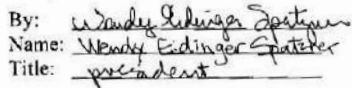 By: Wendy Eidinger Spatzner
Name: Wendy Eidinger Spatzner
Title: president